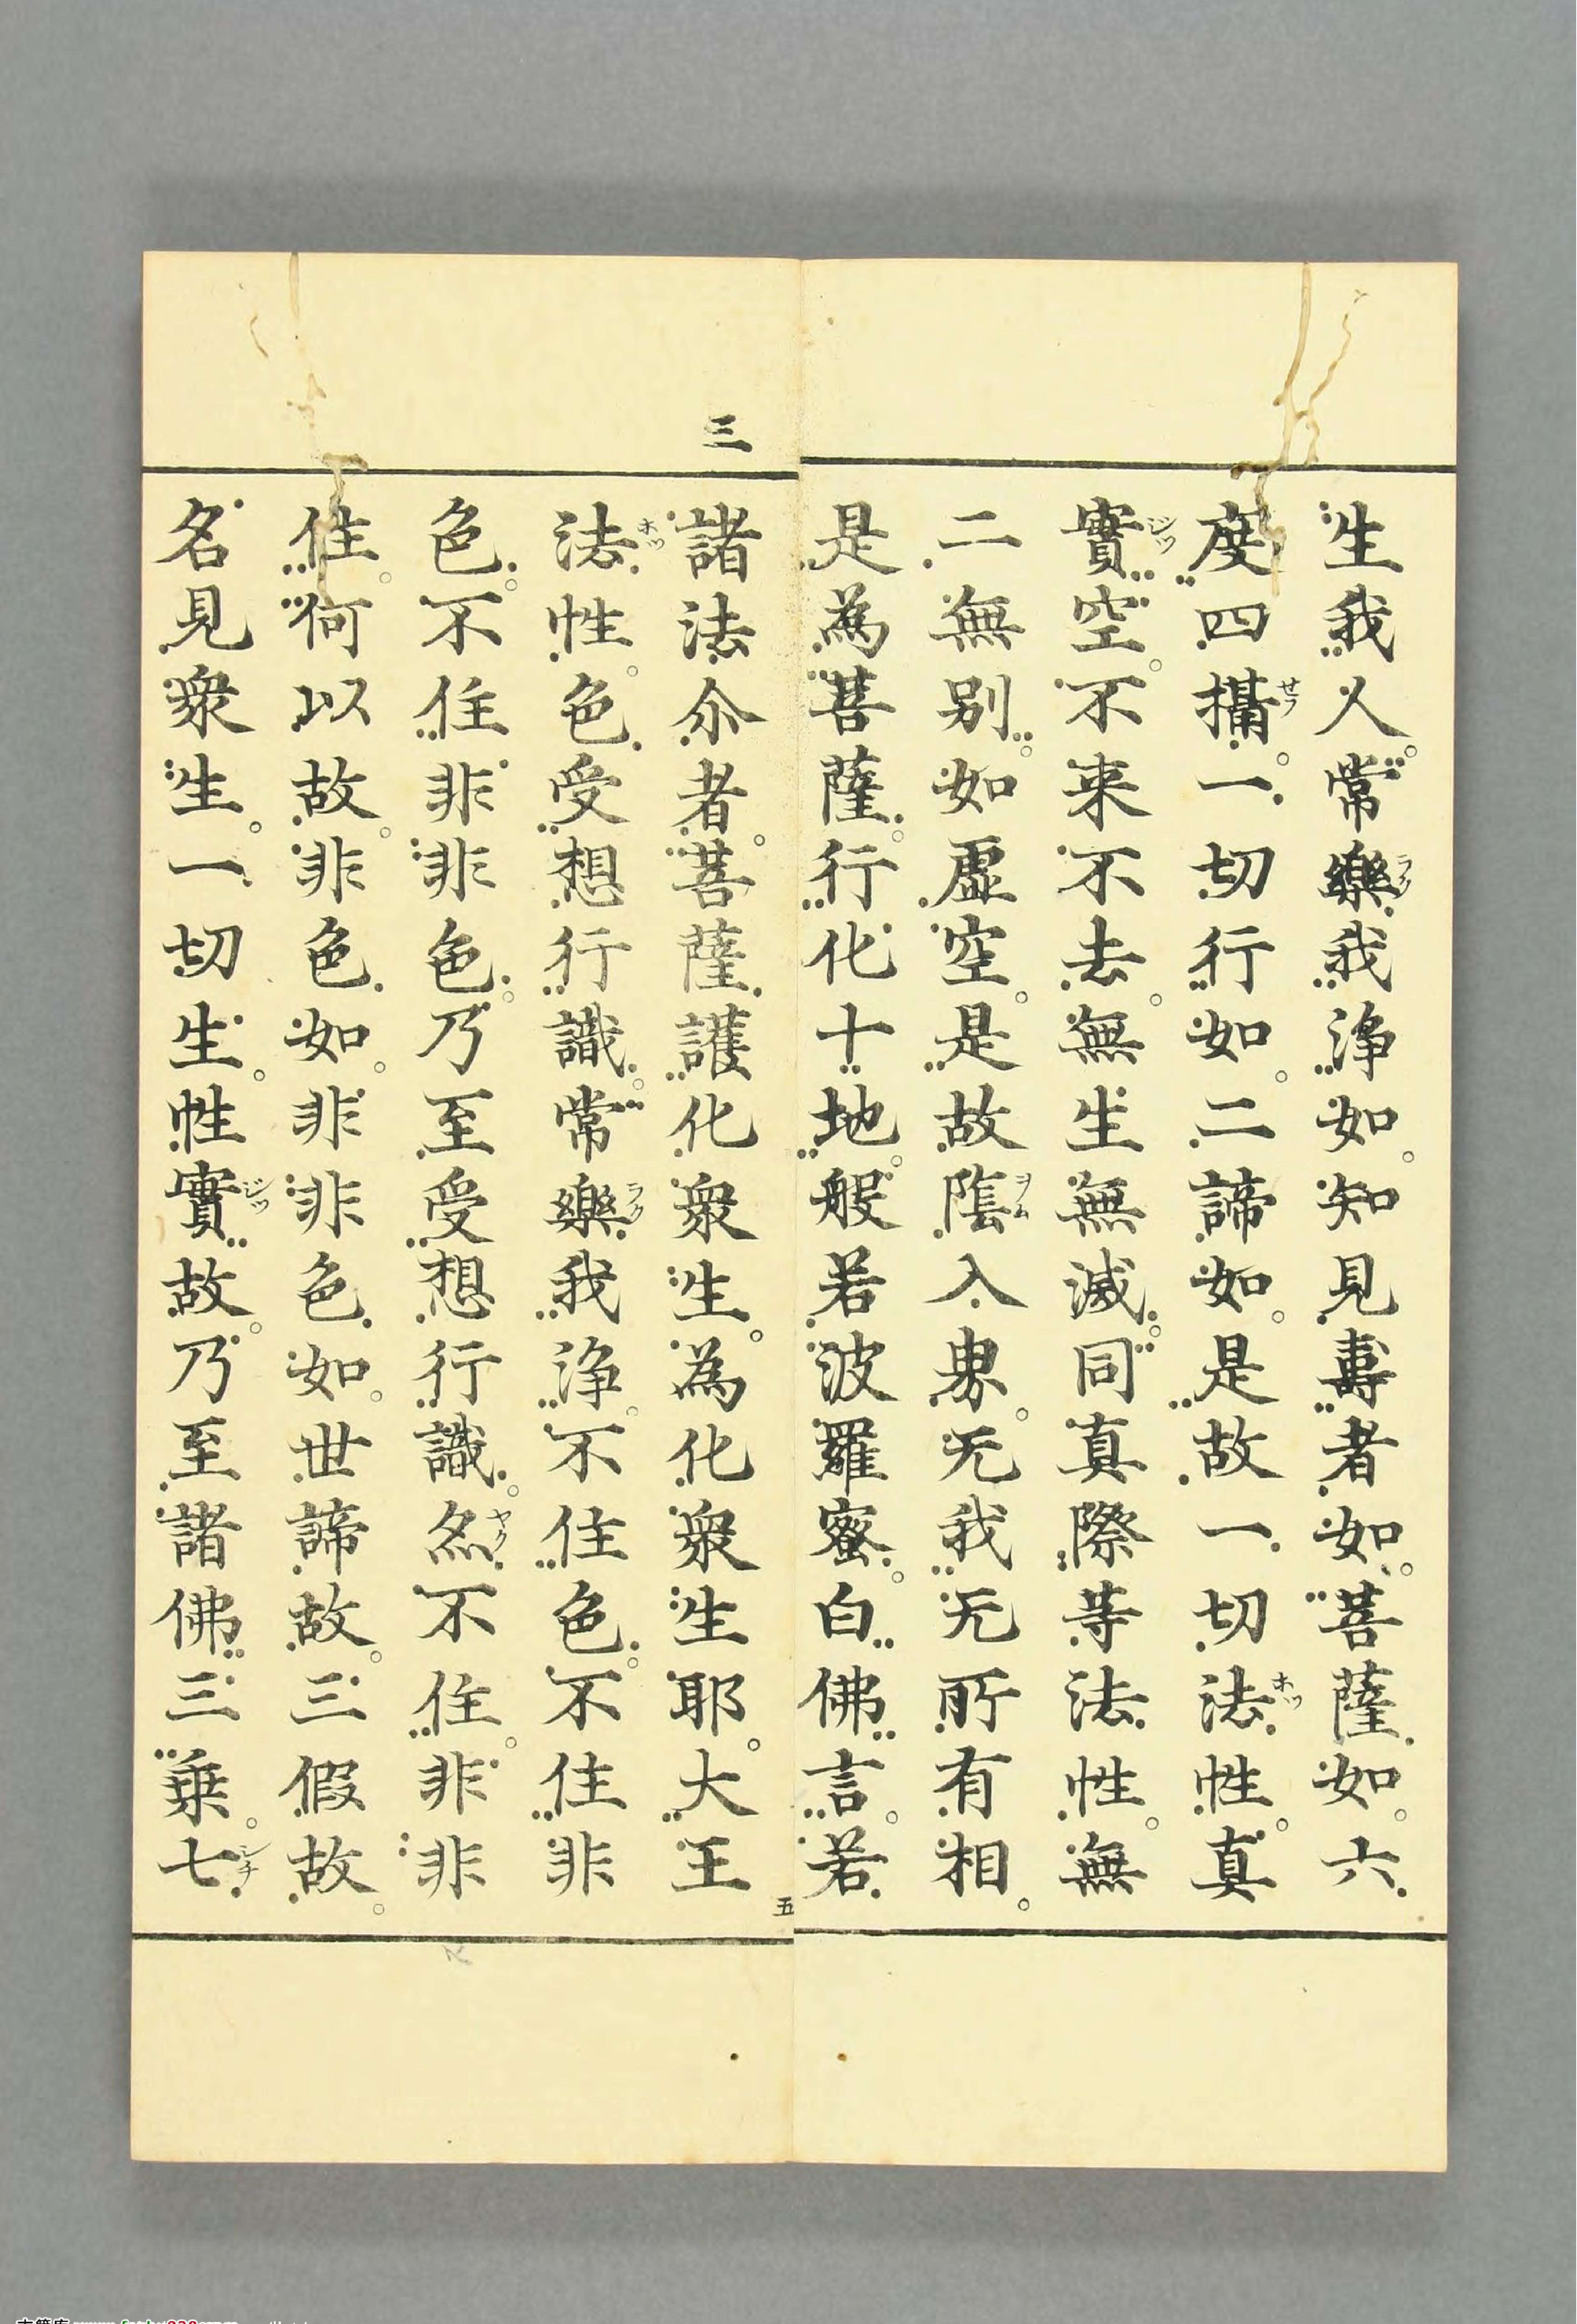 生我人常樂我淨如知見壽者如菩薩如六
度四攝一切行如二諦如是故一切法性真
實空不来不去無生無滅同真際等法性無
二無別如虛空是故陰入界无我无所有相
是為菩薩行化十地般若波羅蜜白佛言若
三
諸法尒者菩薩護化衆生為化衆生耶大王
法性色受想行識常樂我淨不住色不住非
色不住非非色乃至受想行識亦不住非非
住何以故非色如非非色如世諦故三假故
名見衆生一切生性實故乃至諸佛三乗七
五